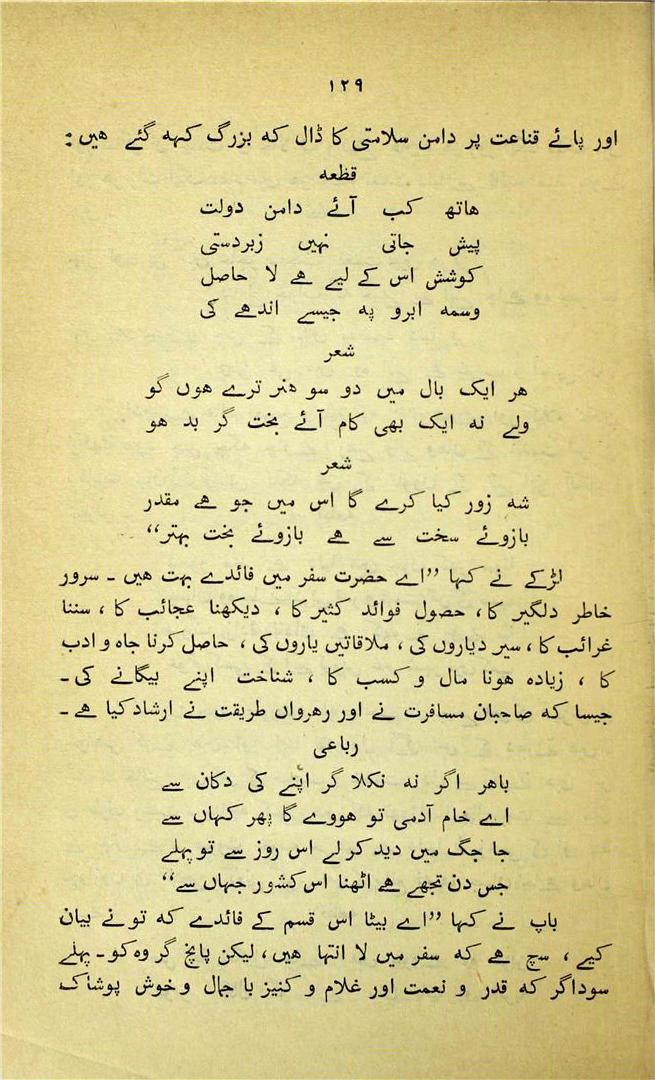 ۱۲۹
اور پائے قناعت پر دامن سلامتی کا ڈال کہ بزرگ کہہ گئے ھیں :
قظعہ
ھاتھ کب آئے دامن دولت
پیش جاتی نہیں زبردستی
کوشش اس کے لیے ھے لا حاصل
وسمہ ابرو پہ جیسے اندھے کی
شعر
ھر ایک بال میں دو سو ھنر ترے ھوں گو
ولے نہ ایک بھی کام آئے بخت گر بد ھو
شعر
شہ زور کیا کرے گا اس میں جو ھے مقدر
بازوئے سخت سے ھے بازوئے بخت بہتر“
لڑکے نے کہا ”اے حضرت سفر میں فائدے بہت ھیں ۔ سرور
خاطر دلگیر کا، حصول فوائد کثیر کا ، دیکھنا عجائب کا ، سننا
غرائب کا ، سیر دیاروں کی ، ملاقاتیں یاروں کی ، حاصل کرنا جاہ و ادب
کا ، زیادہ ھونا مال و کسب کا ، شناخت اپنے بیگانے کی ۔
جیسا کہ صاحبان مسافرت نے اور رھرواں طریقت نے ارشاد کیا ھے ۔
رباعی
باھر اگر نہ نکلا گر اپنے کی دکان سے
اے خام آدمی تو ھووے گا پھر کہاں سے
جا جگ میں دید کر لے اس روز سے تو پہلے
جس دن تجھے ھے اٹھنا اس کشور جہاں سے“
باپ نے کہا ”اے بیٹا اس قسم کے فائدے کہ تو نے بیان
کیے ، سچ ھے کہ سفر میں لا انتہا ھیں ، لیکن پانچ گروہ کو ۔ پہلے
سوداگر کہ قدر و نعمت اور غلام و کنیز با جمال و خوش پوشاک